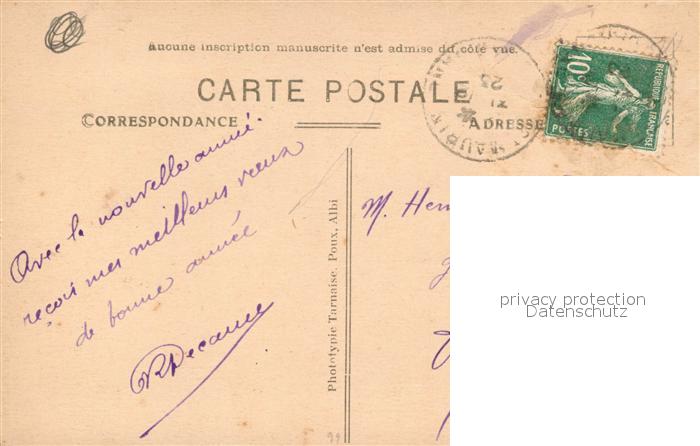 aucune inscription manuscrite n'est admise du côté vue.
CARTE POSTALE
CORRESPONDANCE
ADRESSE
10c
REPUBLIQUE FRANÇAISE
POSTES
Avec la nouvelle année
reçois mes meilleurs vœux
de bonne année
Phototypie Tarnaise, Poux, Albi
M. Hen
privacy protection
Datenschutz